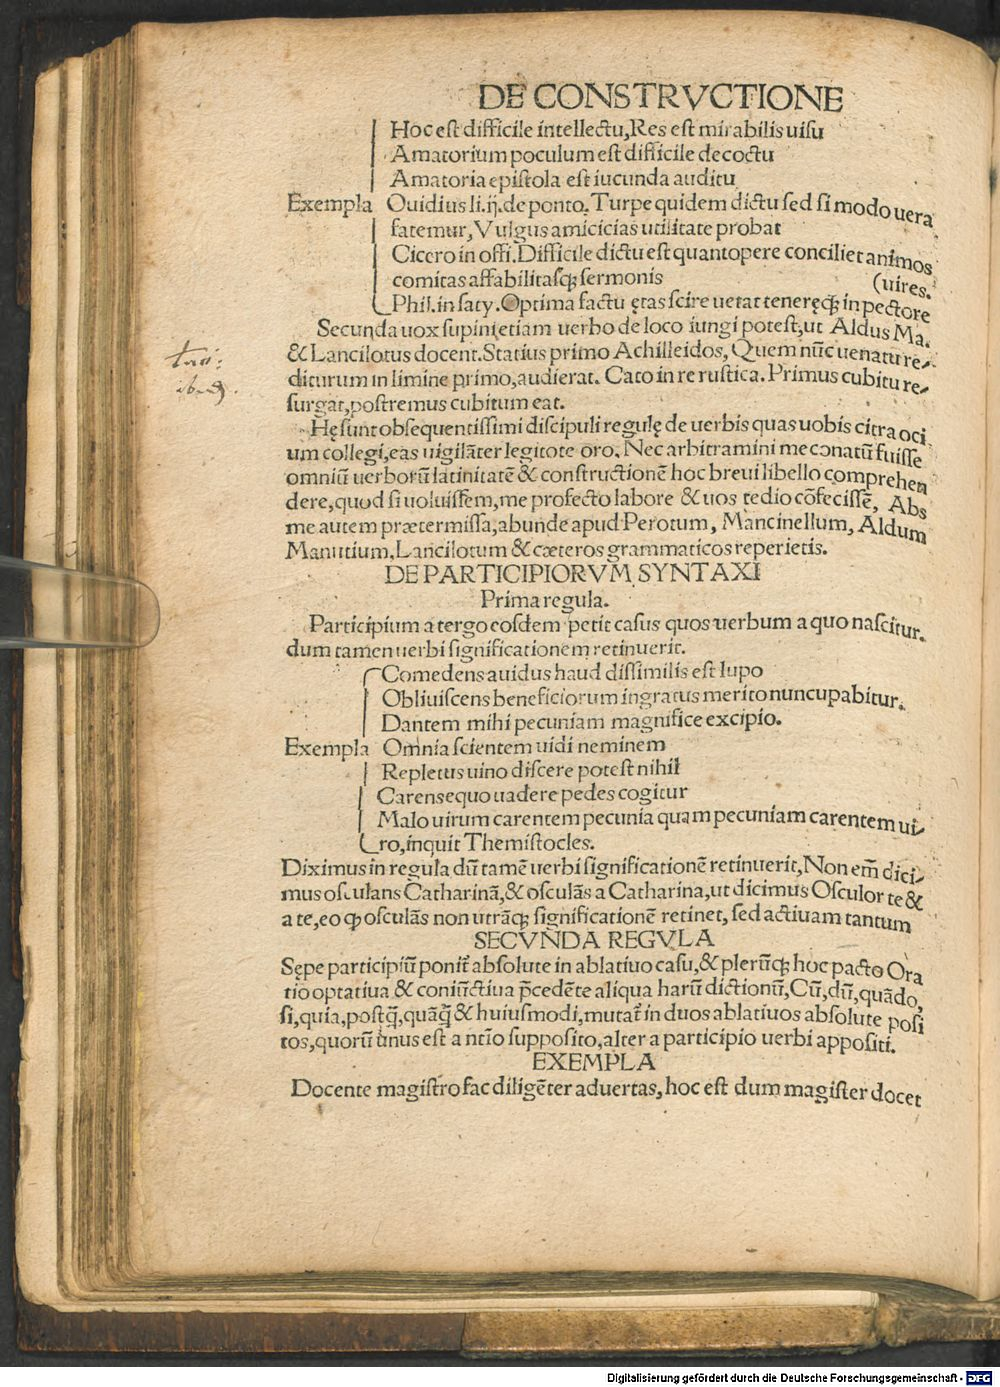 DE CONSTRVCTIONE
Hoc est difficile intellectu, Res est mirabilis uisu
Amatorium poculum est difficile decoctu
Amatoria epistola est iucunda auditu
Exempla Ouidius li.ij.de ponto. Turpe quidem dictu sed si modo uera
fatemur, Vulgus amicicias utilitate probat
Cicero in offi. Difficile dictu est quantopere conciliet animos
comitas affabilitasq; sermonis (uires.
Phil. in saty. Optima factu ętas scire uetat teneręq; in pectore
Secunda uox supini etiam uerbo de loco iungi potest, ut Aldus Ma.
& Lancilotus docent. Statius primo Achilleidos, Quem nūc uenatu re-
diturum in limine primo, audierat. Cato in re rustica. Primus cubitu re-
surgat, postremus cubitum eat.
Hę sunt obsequentissimi discipuli regulę de uerbis quas uobis citra oci
um collegi, eas uigilāter legitote oro. Nec arbitramini me conatū fuisse
omniū uerborū latinitatē & constructionē hoc breui libello comprehen
dere, quod si uoluissem, me profecto labore & uos tedio cōfecissē, Abs
me autem prætermissa, abunde apud Perotum, Mancinellum, Aldum
Manutium, Lancilotum & cæteros grammaticos reperietis.
DE PARTICIPIORVM SYNTAXI
Prima regula.
Participium a tergo eosdem petit casus quos uerbum a quo nascitur.
dum tamen uerbi significationem retinuerit.
Comedens auidus haud dissimilis est lupo
Obliuiscens beneficiorum ingratus merito nuncupabitur.
Dantem mihi pecuniam magnifice excipio.
Exempla Omnia scientem uidi neminem
Repletus uino discere potest nihil
Carens equo uadere pedes cogitur
Malo uirum carentem pecunia quam pecuniam carentem ui-
ro, inquit Themistocles.
Diximus in regula dū tamē uerbi significationē retinuerit, Non em̄ dici-
mus osculans Catharinā, & osculās a Catharina, ut dicimus Osculor te &
a te, eo ꝙ osculās non utrāq; significationē retinet, sed actiuam tantum
SECVNDA REGVLA
Sępe participiū ponit̄ absolute in ablatiuo casu, & plerūq; hoc pacto Ora
tio optatiua & coniūctiua p̄cedēte aliqua harū dictionū, Cū, dū, quādo,
si, quia, postq̄, quāq̄ & huiusmodi, mutat̄ in duos ablatiuos absolute posi
tos, quorū unus est a nt̄io supposito, alter a participio uerbi appositi.
EXEMPLA
Docente magistro fac diligēter aduertas, hoc est dum magister docet
Digitalisierung gefördert durch die Deutsche Forschungsgemeinschaft - DFG